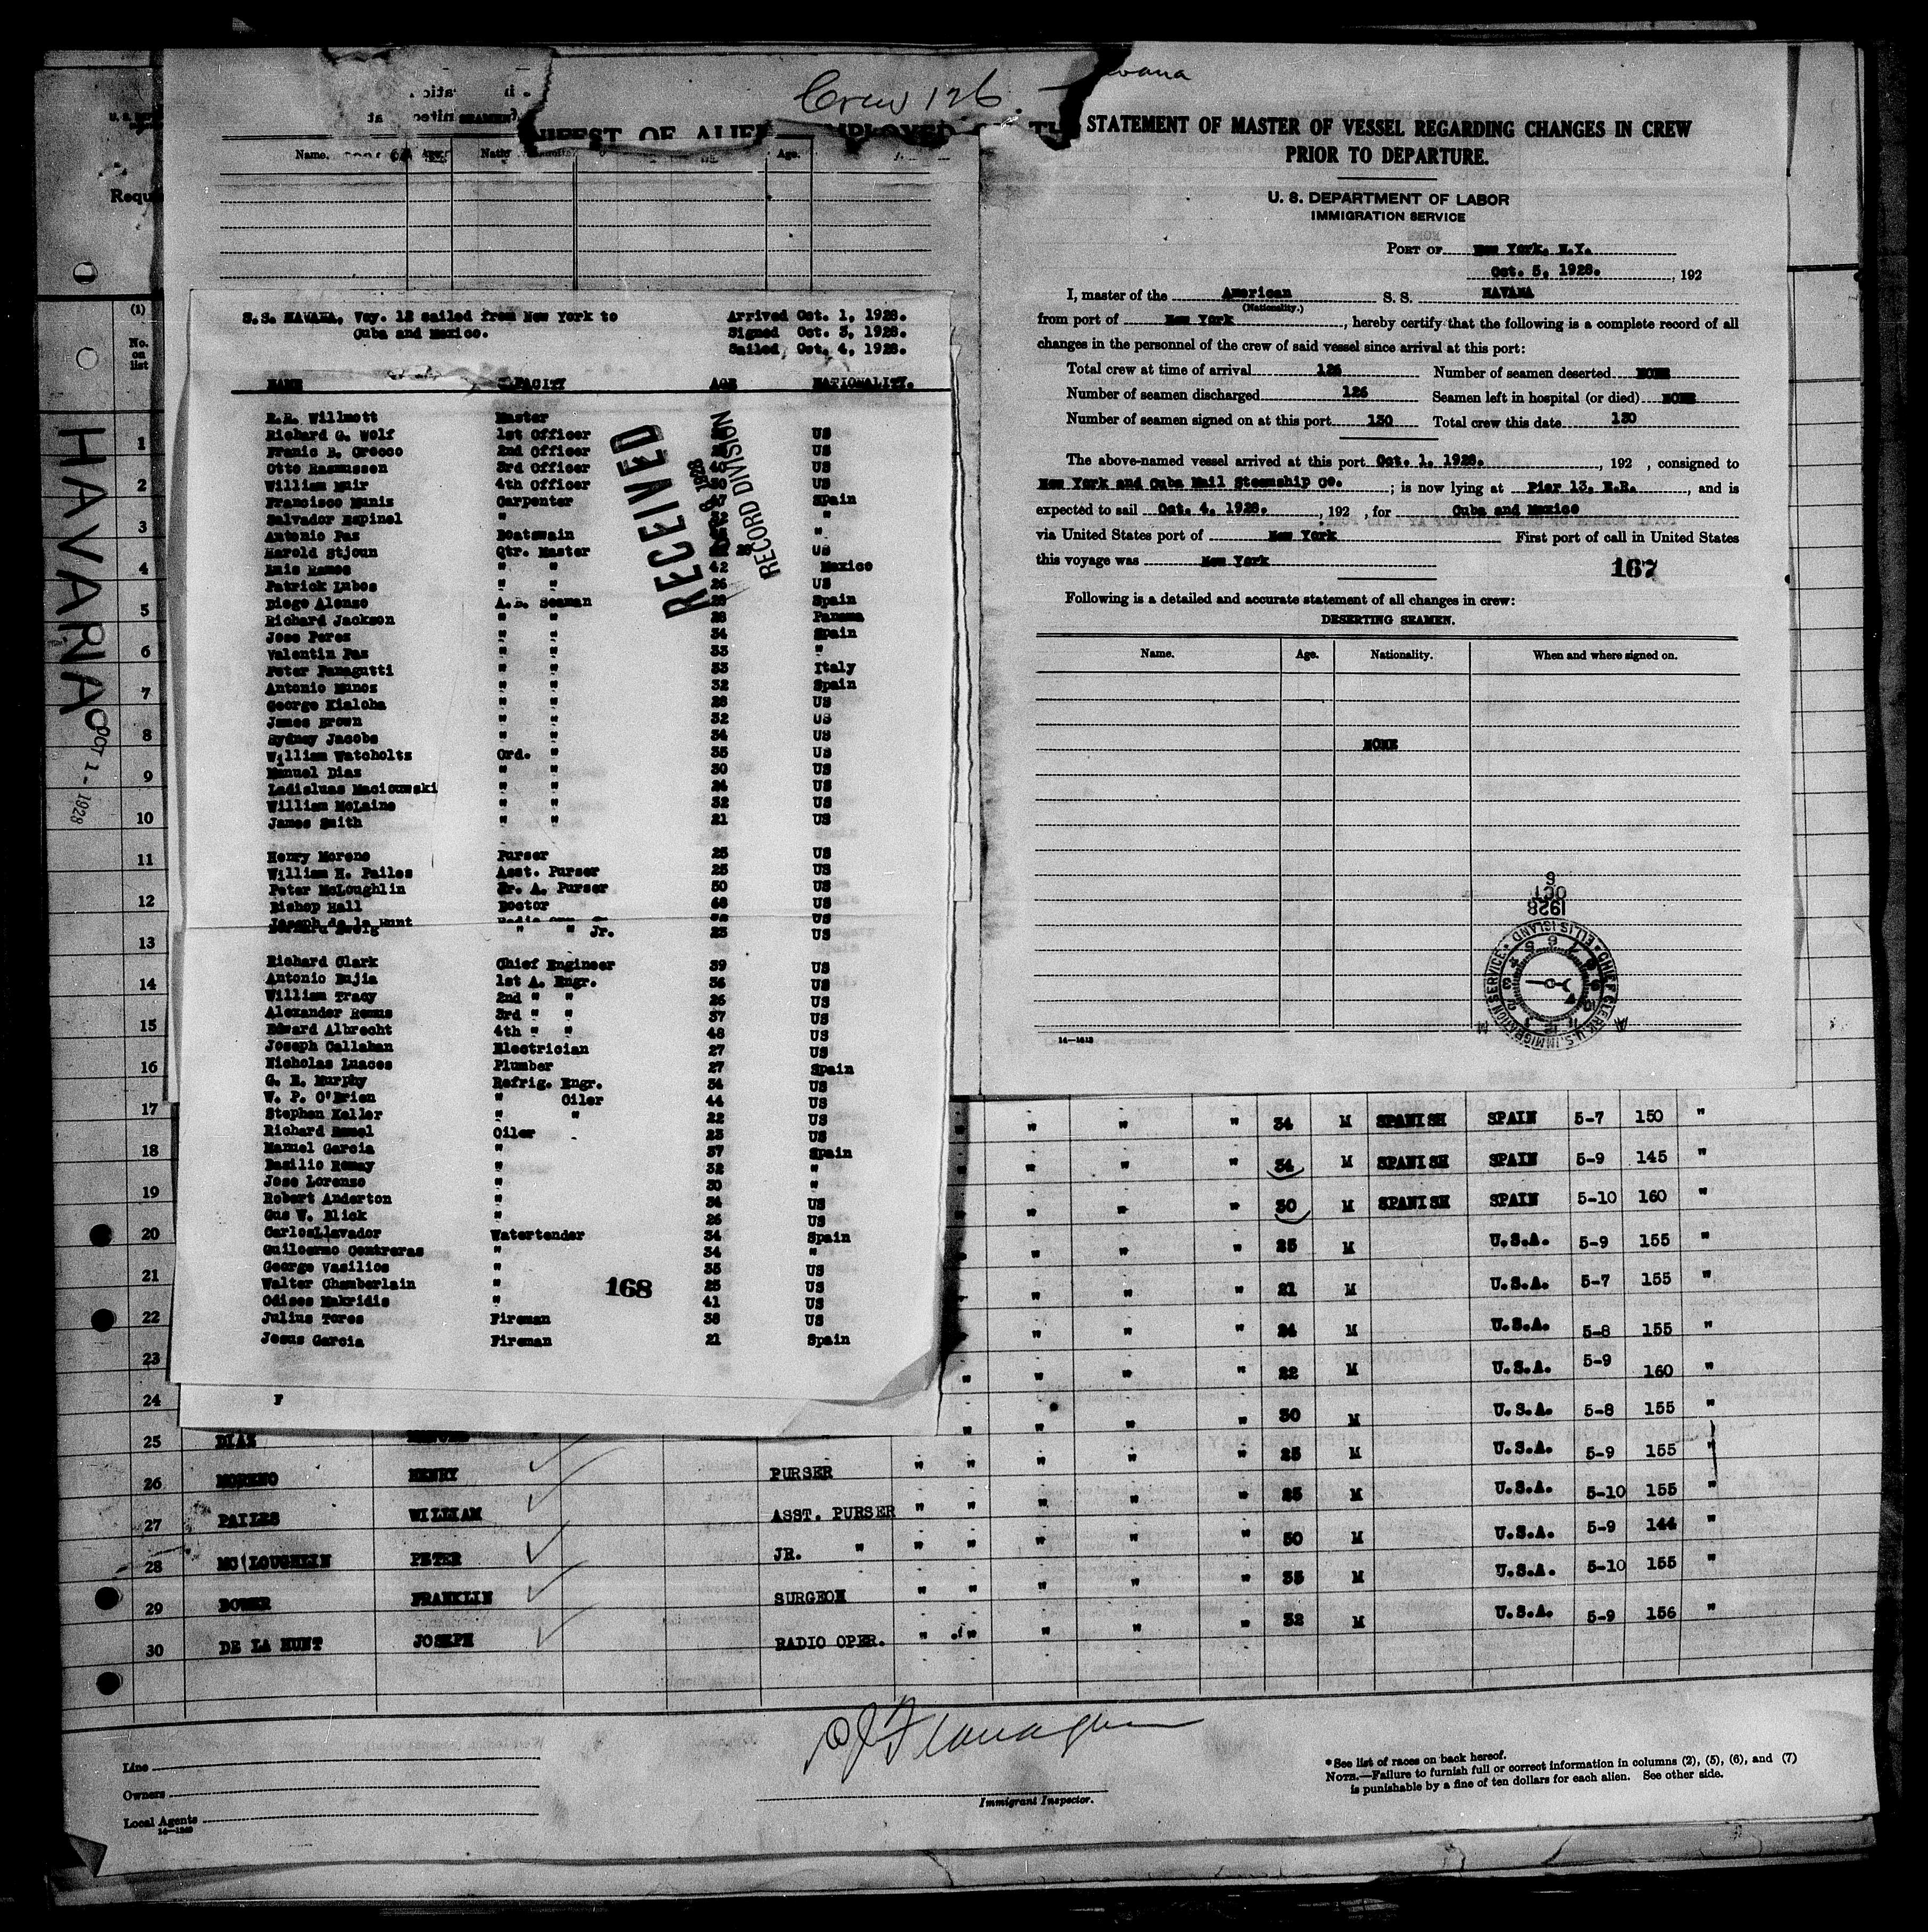 Crew 126.
STATEMENT OF MASTER OF VESSEL REGARDING CHANGES IN CREW
PRIOR TO DEPARTURE.
U. S. DEPARTMENT OF LABOR
IMMIGRATION SERVICE
PORT OF New York, N.Y.
Oct. 5, 1928. , 192
I, master of the American S. S. HAVANA
(Nationality.)
from port of New York , hereby certify that the following is a complete record of all
changes in the personnel of the crew of said vessel since arrival at this port:
Total crew at time of arrival 126 Number of seamen deserted NONE
Number of seamen discharged 126 Seamen left in hospital (or died) NONE
Number of seamen signed on at this port 130 Total crew this date 130
The above-named vessel arrived at this port Oct. 1, 1928. , 192 , consigned to
New York and Cuba Mail Steamship Co. ; is now lying at Pier 13, E.R. , and is
expected to sail Oct. 4, 1928. , 192 , for Cuba and Mexico
via United States port of New York First port of call in United States
this voyage was New York
167
Following is a detailed and accurate statement of all changes in crew:
DESERTING SEAMEN.
Name. Age. Nationality. When and where signed on.
NONE
1928
OCT
CHIEF CLERK U.S. IMMIGRATION SERVICE ELLIS ISLAND
14—1413
Name. Age.
S.S. HAVANA, Voy. 12 sailed from New York to Arrived Oct. 1, 1928.
Cuba and Mexico. Signed Oct. 3, 1928.
Sailed, Oct. 4, 1928.
NAME CAPACITY AGE NATIONALITY.
RECEIVED
RECORD DIVISION
R.R. Willmott Master
Richard G. Wolf 1st Officer US
2nd Officer US
Otto Rasmussen 3rd Officer 40 US
William Muir 4th Officer 30 US
Francisco Munis Carpenter 47 Spain
Salvador Espinel " 32 "
Antonio Paz Boatswain "
Harold Stjoun Qtr. Master US
Luis Ramos " " 42 Mexico
Patrick Lubos " " 26 US
Diego Alonso A.B. Seaman Spain
Richard Jackson " " 28 Panama
Jose Perez " " 34 Spain
Valentin Paz " " 33 "
Peter Panagutti " " 33 Italy
Antonio Munos " " 32 Spain
George Kialoha " " 28 US
James Brown " " 32 US
Sydney Jacobs " " 34 US
William Watcholtz Ord. " 35 US
Manuel Diaz " " 30 US
Ladisluas Maciouwski " " 24 US
William McLaine " " 32 US
James Smith " " 21 US
Henry Moreno Purser 25 US
William H. Pailes Asst. Purser 25 US
Peter McLoughlin Jr. A. Purser 50 US
Bishop Hall Doctor 68 US
Joseph de la Hunt US
" " Jr. 23 US
Richard Clark Chief Engineer 39 US
Antonio Bujia 1st A. Engr. 36 US
William Tracy 2nd " " 26 US
Alexander Remus 3rd " " 37 US
Edward Albrecht 4th " " 48 US
Joseph Callahan Electrician 27 US
Nicholas Luaces Plumber 27 Spain
G. E. Murphy Refrig. Engr. 34 US
W. P. O'Brien " Oiler 44 US
Stephen Keller " " 22 US
Richard Oiler 23 US
Manuel Garcia " 37 Spain
Basilio Remay " 32 "
Jose Lorenzo " 30 "
Robert Anderton " 34 US
Gus W. Blick " 26 US
CarlosLlavador Watertender 34 Spain
Guilermo Contreras " 34 "
George Vasilios " 35 US
Walter Chamberlain " 25 US
Odises Makridis " 41 US
Julius Tores Fireman 38 US
Jesus Garcia Fireman 21 Spain
168
HAVANA
OCT 1 - 1928
(1)
No. on list
1
2
3
4
5
6
7
8
9
10
11
12
13
14
15
16
17 " " " 34 M SPANISH SPAIN 5-7 150 "
18 " " " 34 M SPANISH SPAIN 5-9 145 "
19 " " " 30 M SPANISH SPAIN 5-10 160 "
20 " " " 25 M U.S.A. 5-9 155 "
21 " " " 21 M U.S.A. 5-7 155 "
22 " " " 24 M U.S.A. 5-8 155 "
23 " " " 22 M U.S.A. 5-9 160 "
24 " " " 30 M U.S.A. 5-8 155 "
25 DIAZ " " " 25 M U.S.A. 5-9 155 "
26 MORENO HENRY PURSER " " " " " 25 M U.S.A. 5-10 155 "
27 PAILES WILLIAM ASST. PURSER " " " " " 50 M U.S.A. 5-9 144 "
28 MC LOUGHLIN PETER JR. " " " " " " 35 M U.S.A. 5-10 155 "
29 BOWER FRANKLIN SURGEON " " " " " 32 M U.S.A. 5-9 156 "
30 DE LA HUNT JOSEPH RADIO OPER. " " " " "
Line
Owners
Local Agents
14—1240
Immigrant Inspector.
* See list of races on back hereof.
NOTE.—Failure to furnish full or correct information in columns (2), (5), (6), and (7)
is punishable by a fine of ten dollars for each alien. See other side.